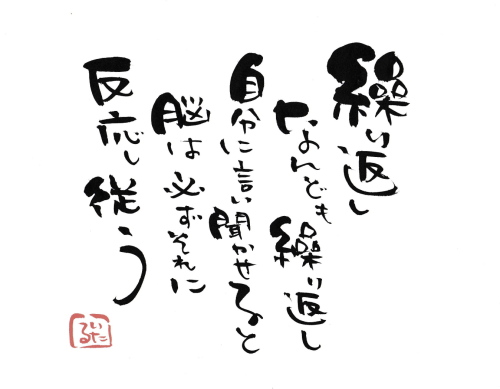 繰り返し
なんども繰り返し
自分に言い聞かせると
脳は必ずそれに
反応し従う